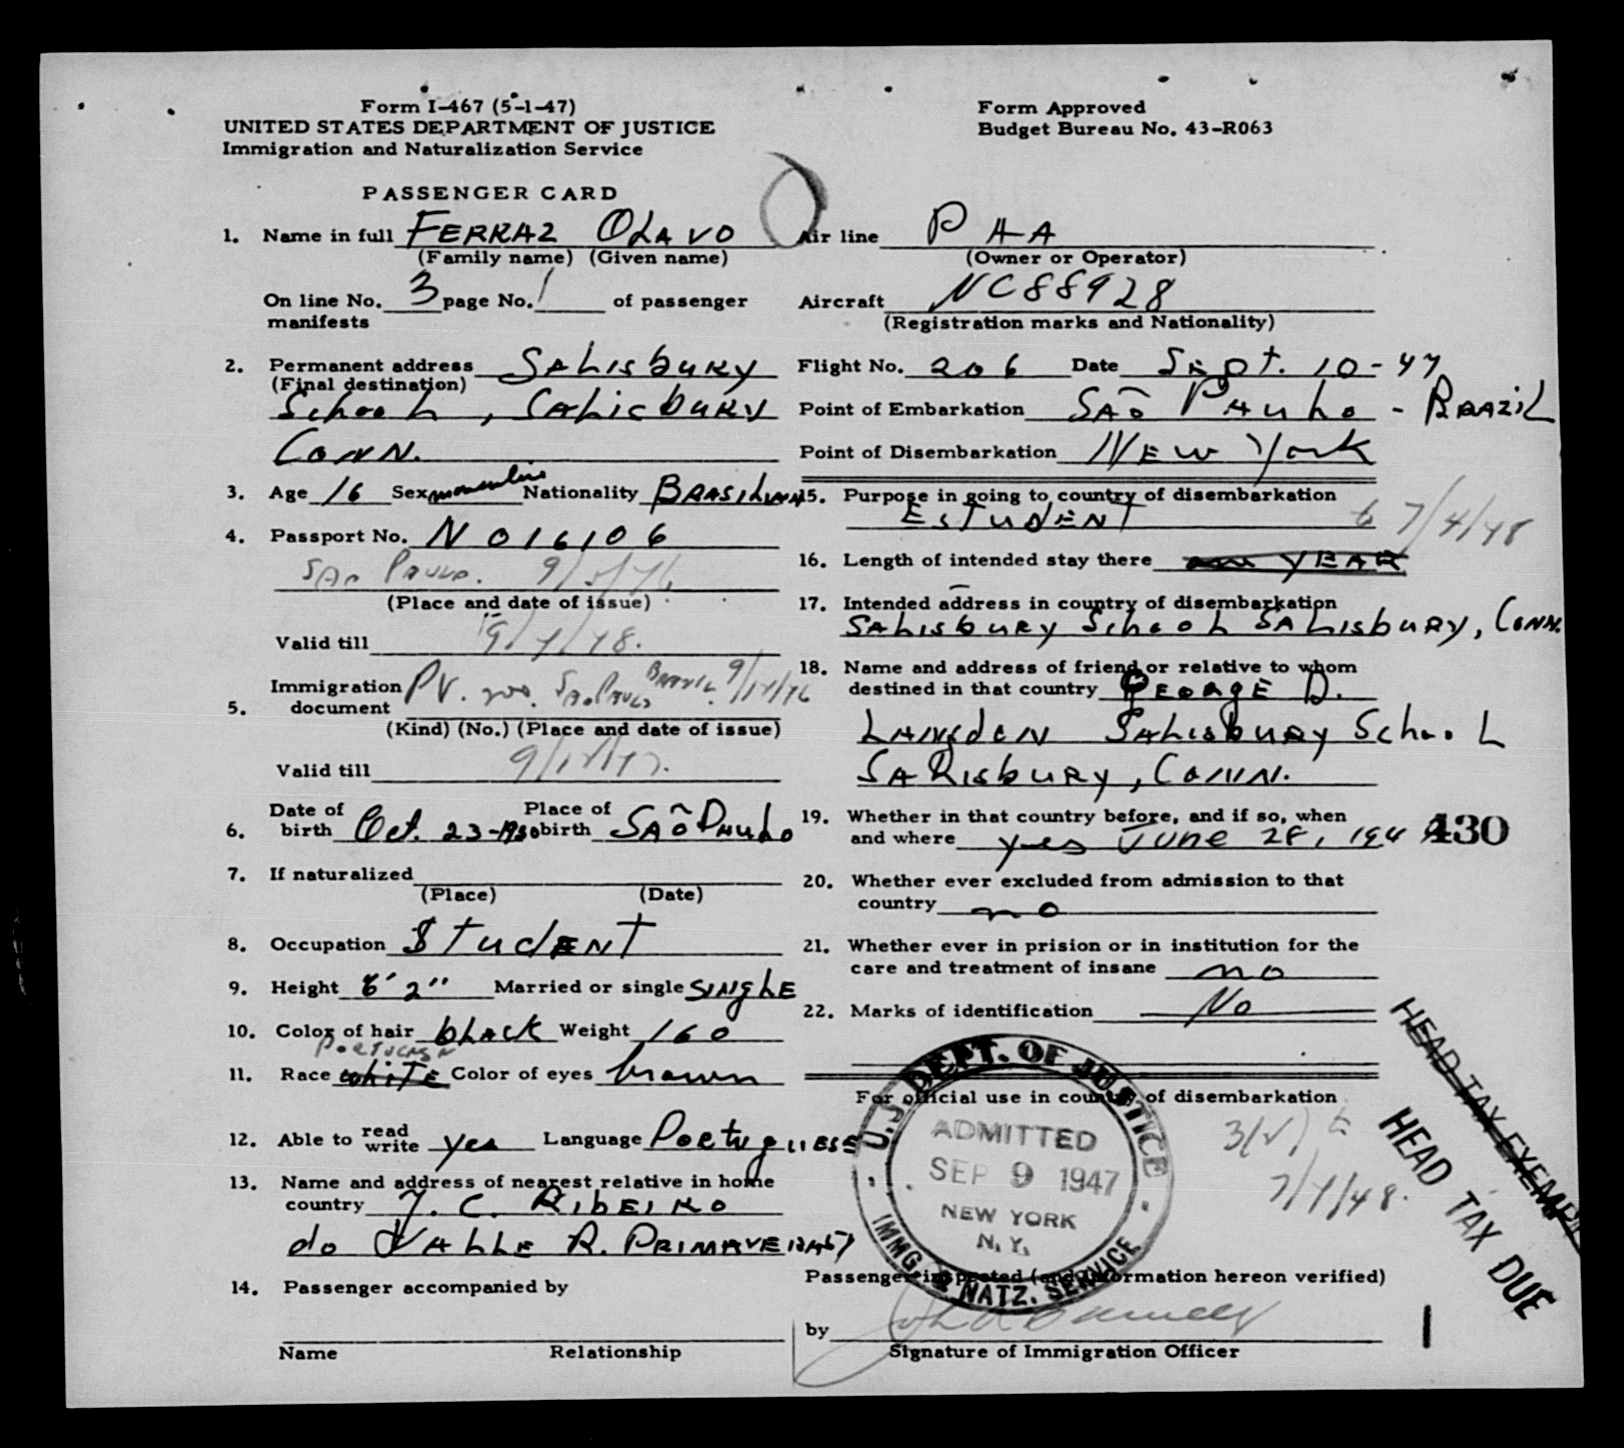 Form I-467 (5-1-47)
UNITED STATES DEPARTMENT OF JUSTICE
Immigration and Naturalization Service
Form Approved
Budget Bureau No. 43-R063
PASSENGER CARD
1. Name in full FERRAZ OLAVO
(Family name) (Given name)
On line No. 3 page No. 1 of passenger
manifests
2. Permanent address SALISbURY
(Final destination)
School, SALISbURY
CONN.
3. Age 16 Sex masculin Nationality BRASILIAN
4. Passport No. N 016106
SAO PAULO. 9/5/46
(Place and date of issue)
Valid till 9/4/48.
Immigration
5. document PV. SAO PAULO BRAZIL 9/17/46
(Kind) (No.) (Place and date of issue)
Valid till 9/17/47.
Date of Place of
6. birth Oct. 23-1930 birth SÃO PAULO
7. If naturalized
(Place) (Date)
8. Occupation STUdENT
9. Height 6' 2" Married or single SINGLE
10. Color of hair black Weight 160
PORTUGESE
11. Race whiTE Color of eyes brown
12. Able to read
write yes Language PORTUgUESE
13. Name and address of nearest relative in home
country J. C. RIbEIRO
do VALLE R. PRIMAVERA 57
14. Passenger accompanied by
Name Relationship
Air line PAA
(Owner or Operator)
Aircraft NC88928
(Registration marks and Nationality)
Flight No. 206 Date SEpt. 10-47
Point of Embarkation SÃO PAULO - BRAZIL
Point of Disembarkation NEW York
15. Purpose in going to country of disembarkation
ESTUdENT to 7/4/48
16. Length of intended stay there YEAR
17. Intended address in country of disembarkation
SALISbURY SchooL SALISbURY, CONN.
18. Name and address of friend or relative to whom
destined in that country GEORGE D.
LANGdON SALISbURY SchooL
SALISbURY, CONN.
19. Whether in that country before, and if so, when
and where yes JUNE 28, 194
430
20. Whether ever excluded from admission to that
country no
21. Whether ever in prision or in institution for the
care and treatment of insane no
22. Marks of identification No
For official use in country of disembarkation
U.S. DEPT. OF JUSTICE
ADMITTED
SEP 9 1947
NEW YORK
N.Y.
IMMG. & NATZ. SERVICE
7/4/48.
HEAD TAX EXEMPT
HEAD TAX DUE
Passenger inspected (and information hereon verified)
by
Signature of Immigration Officer